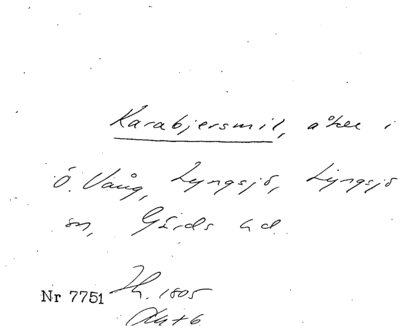 Karabjersmil, åker i
Ö. Vång, Lyngsjö, Lyngsjö
sn, Gärds hd.
Nr 7751 1805